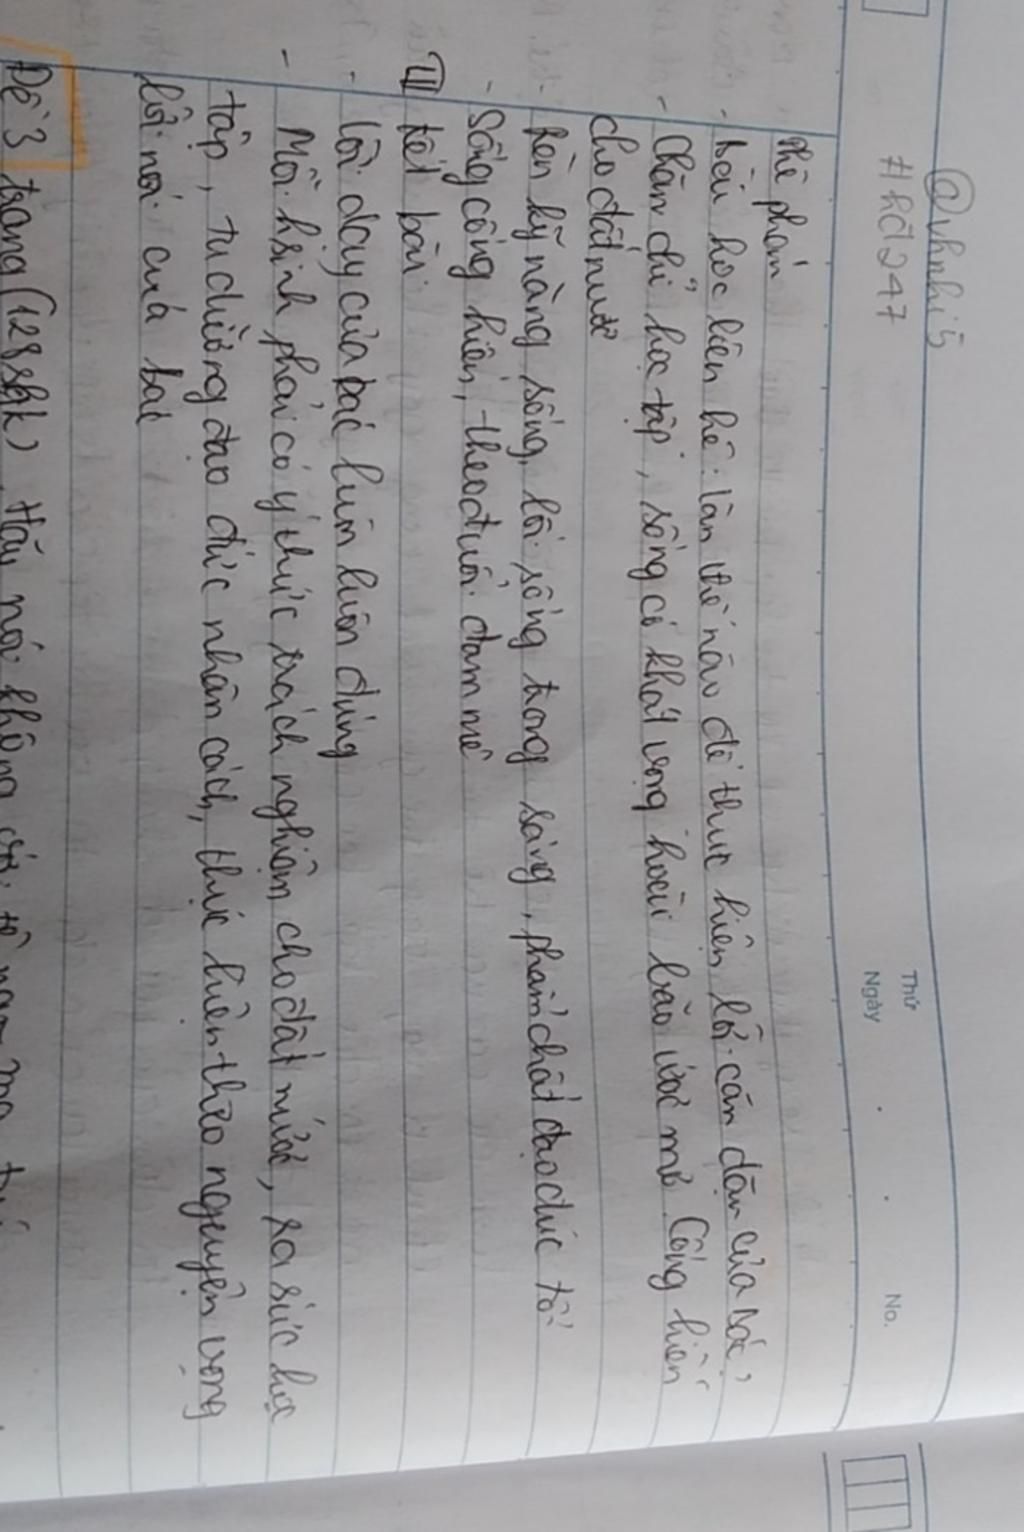 @vhnhi5
#hđ247
Thứ
Ngày
No.
phê phán
- bài học liên hệ: làm thế nào để thực hiện lời căn dặn của bác?
- Chăm chỉ học tập, sống có khát vọng hoài bão ước mơ. Cống hiến
cho đất nước
- Rèn kỹ năng sống, lối sống trong sáng, phẩm chất đạo đức tốt
- Sống cống hiến, theo đuổi đam mê
III kết bài:
- lời dạy của bác luôn luôn đúng
- Mỗi hsinh phải có ý thức trách nghiệm cho đất nước, ra sức học
tập, tu dưỡng đạo đức nhân cách, thực hiện theo nguyện vọng
lời nói của bác
Đề 3 trang (128sgk) Hãy nói không với tệ nạn ma